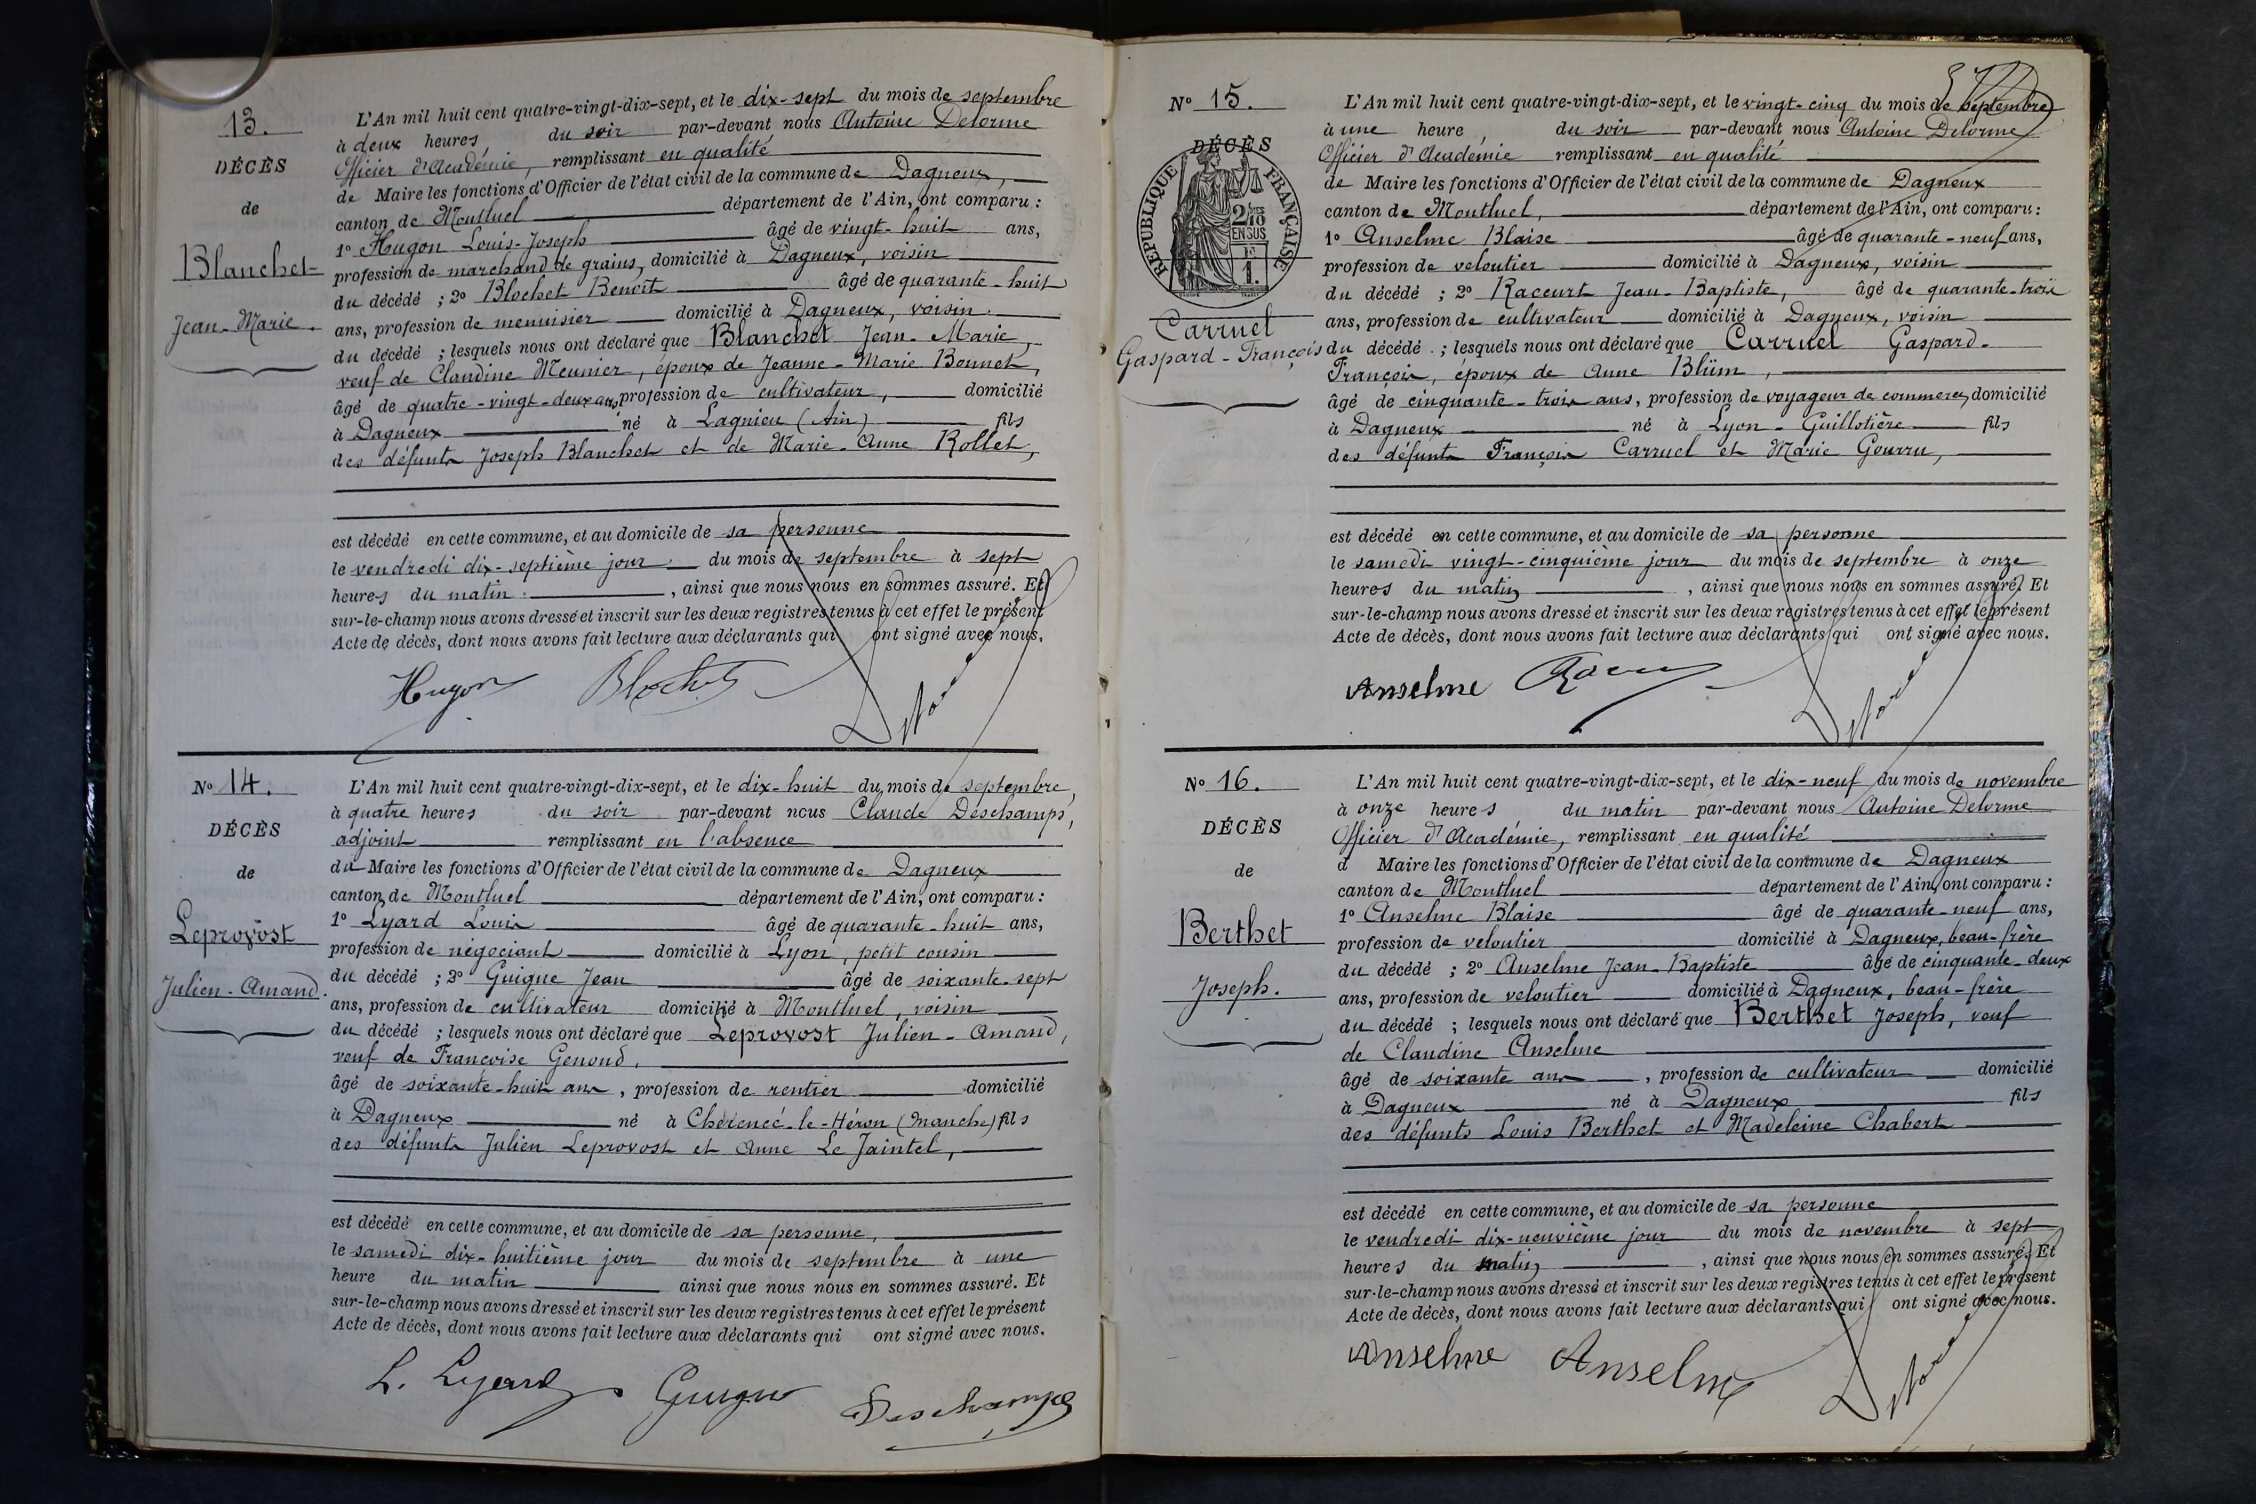 13.
DÉCÈS
de
Blanchet
Jean-Marie.
L'An mil huit cent quatre-vingt-dix-sept, et le dix-sept du mois de septembre
à deux heures du soir par-devant nous Antoine Delorme
Officier d'Académie, remplissant en qualité
de Maire les fonctions d'Officier de l'état civil de la commune de Dagneux,
canton de Montluel département de l'Ain, ont comparu :
1º Hugon Louis-Joseph âgé de vingt-huit ans,
profession de marchand de grains, domicilié à Dagneux, voisin
du décédé ; 2º Blochet Benoît âgé de quarante-huit
ans, profession de menuisier domicilié à Dagneux, voisin
du décédé ; lesquels nous ont déclaré que Blanchet Jean-Marie,
veuf de Claudine Meunier, époux de Jeanne-Marie Bonnet,
âgé de quatre-vingt-deux ans, profession de cultivateur, domicilié
à Dagneux né à Lagnieu (Ain) fils
des défunts Joseph Blanchet et de Marie-Anne Rollet,
est décédé en cette commune, et au domicile de sa personne
le vendredi dix-septième jour du mois de septembre à sept
heures du matin. , ainsi que nous nous en sommes assuré. Et
sur-le-champ nous avons dressé et inscrit sur les deux registres tenus à cet effet le présent
Acte de décès, dont nous avons fait lecture aux déclarants qui ont signé avec nous.
Hugon Blochet Delorme
Nº 14.
DÉCÈS
de
Leprovost
Julien-Amand.
L'An mil huit cent quatre-vingt-dix-sept, et le dix-huit du mois de septembre,
à quatre heures du soir par-devant nous Claude Deschamps,
adjoint remplissant en l'absence
du Maire les fonctions d'Officier de l'état civil de la commune de Dagneux
canton de Montluel département de l'Ain, ont comparu :
1º Lyard Louis âgé de quarante-huit ans,
profession de négociant domicilié à Lyon, petit cousin
du décédé ; 2º Guigue Jean âgé de soixante-sept
ans, profession de cultivateur domicilié à Montluel, voisin
du décédé ; lesquels nous ont déclaré que Leprovost Julien-Amand,
veuf de Françoise Genoud,
âgé de soixante-huit ans, profession de rentier domicilié
à Dagneux né à Chérencé-le-Héron (Manche) fils
des défunts Julien Leprovost et Anne Le Jaintel,
est décédé en cette commune, et au domicile de sa personne,
le samedi dix-huitième jour du mois de septembre à une
heure du matin ainsi que nous nous en sommes assuré. Et
sur-le-champ nous avons dressé et inscrit sur les deux registres tenus à cet effet le présent
Acte de décès, dont nous avons fait lecture aux déclarants qui ont signé avec nous.
L. Lyard Guigue Deschamps
Nº 15.
DÉCÈS
RÉPUBLIQUE FRANÇAISE
2/10 EN SUS
1f.
Carruel
Gaspard-François
L'An mil huit cent quatre-vingt-dix-sept, et le vingt-cinq du mois de septembre
à une heure du soir par-devant nous Antoine Delorme
Officier d'Académie remplissant en qualité
de Maire les fonctions d'Officier de l'état civil de la commune de Dagneux
canton de Montluel, département de l'Ain, ont comparu :
1º Anselme Blaise âgé de quarante-neuf ans,
profession de veloutier domicilié à Dagneux, voisin
du décédé ; 2º Racourt Jean-Baptiste, âgé de quarante-trois
ans, profession de cultivateur domicilié à Dagneux, voisin
du décédé ; lesquels nous ont déclaré que Carruel Gaspard-
François, époux de Anne Blüm,
âgé de cinquante-trois ans, profession de voyageur de commerce, domicilié
à Dagneux né à Lyon-Guillotière fils
des défunts François Carruel et Marie Gourru,
est décédé en cette commune, et au domicile de sa personne
le samedi vingt-cinquième jour du mois de septembre à onze
heures du matin , ainsi que nous nous en sommes assuré. Et
sur-le-champ nous avons dressé et inscrit sur les deux registres tenus à cet effet le présent
Acte de décès, dont nous avons fait lecture aux déclarants qui ont signé avec nous.
Anselme Delorme
Nº 16.
DÉCÈS
de
Berthet
Joseph.
L'An mil huit cent quatre-vingt-dix-sept, et le dix-neuf du mois de novembre
à onze heures du matin par-devant nous Antoine Delorme
Officier d'Académie, remplissant en qualité
d Maire les fonctions d'Officier de l'état civil de la commune de Dagneux
canton de Montluel département de l'Ain, ont comparu :
1º Anselme Blaise âgé de quarante-neuf ans,
profession de veloutier domicilié à Dagneux, beau-frère
du décédé ; 2º Anselme Jean-Baptiste âgé de cinquante-deux
ans, profession de veloutier domicilié à Dagneux, beau-frère
du décédé ; lesquels nous ont déclaré que Berthet Joseph, veuf
de Claudine Anselme
âgé de soixante ans , profession de cultivateur domicilié
à Dagneux né à Dagneux fils
des défunts Louis Berthet et Madeleine Chabert
est décédé en cette commune, et au domicile de sa personne
le vendredi dix-neuvième jour du mois de novembre à sept
heures du matin , ainsi que nous nous en sommes assuré. Et
sur-le-champ nous avons dressé et inscrit sur les deux registres tenus à cet effet le présent
Acte de décès, dont nous avons fait lecture aux déclarants qui ont signé avec nous.
Anselme Anselme Delorme